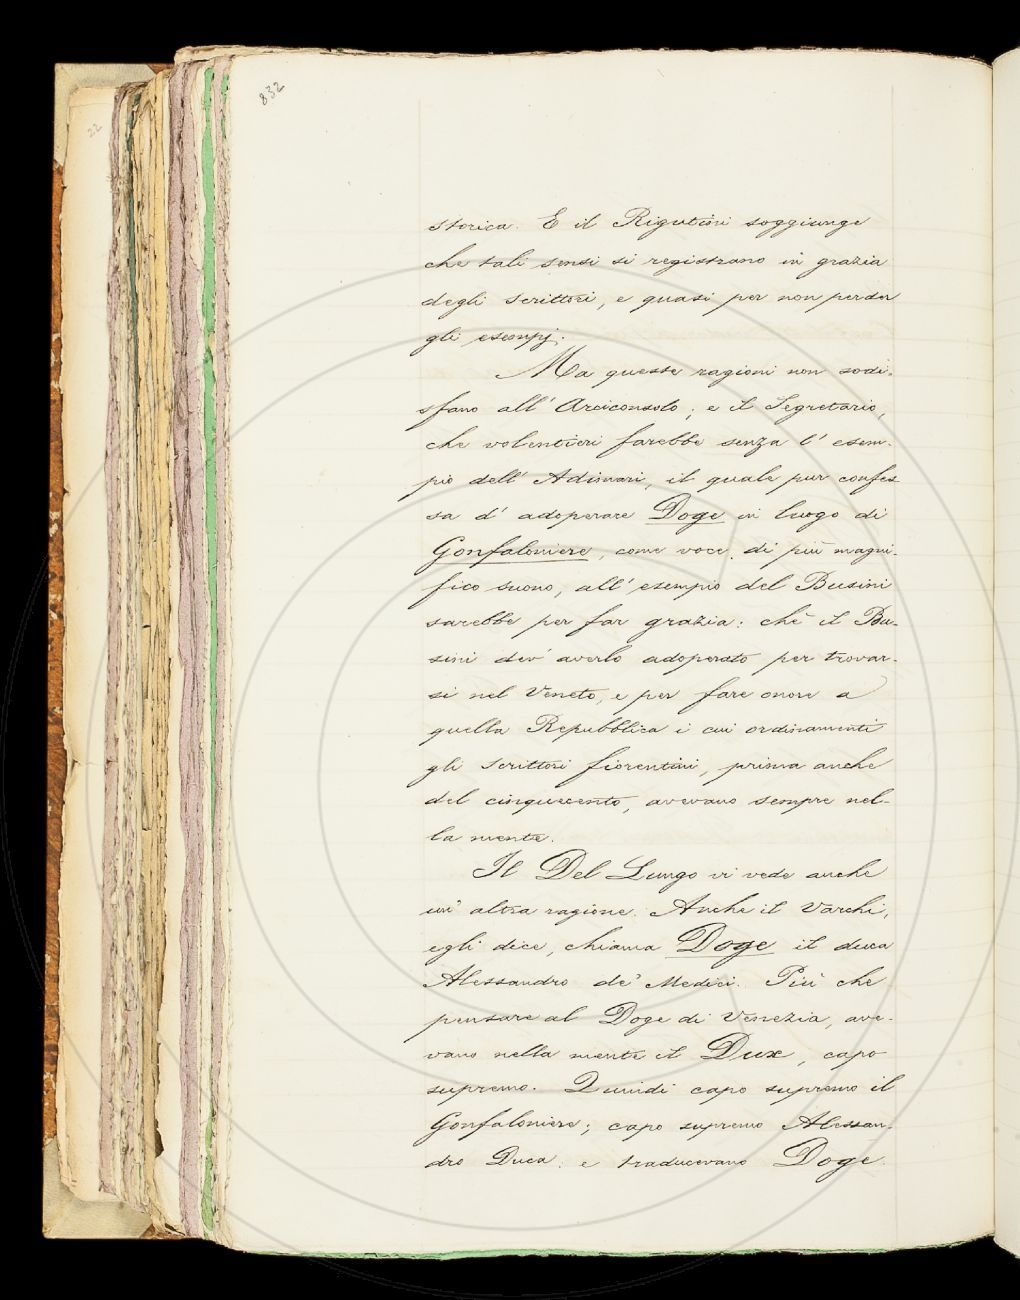 832
22
storica. E il Rigutini soggiunge
che tali sensi si registrano in grazia
degli scrittori, e quasi per non perder
gli esempj.
Ma queste ragioni non sodi-
sfano all'Arciconsolo, e il Segretario,
che volentieri farebbe senza l'esem-
pio dell'Adimari, il quale pur confes
sa d'adoperare Doge in luogo di
Gonfaloniere, come voce di più magni-
fico suono, all'esempio del Busini
sarebbe per far grazia: chè il Bu-
sini dev'averlo adoperato per trovar-
si nel Veneto, e per fare onore a
quella Repubblica i cui ordinamenti
gli scrittori fiorentini, prima anche
del cinquecento, avevano sempre nel-
la mente.
Il Del Lungo vi vede anche
un'altra ragione. Anche il Varchi,
egli dice, chiama Doge il duca
Alessandro de' Medici. Più che
pensare al Doge di Venezia, ave-
vano nella mente il Dux, capo
supremo. Quindi capo supremo il
Gonfaloniere; capo supremo Alessan-
dro Duca; e traducevano Doge.